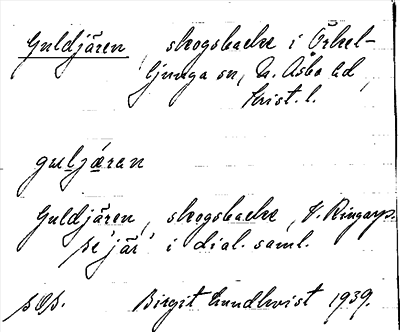 Guldjären, skogsbacke i Örkel-
ljunga sn, N. Åsbo hd,
Krist. l.
guljæran
Guldjären, skogsbacke, V. Ringarp.
se 'jär' i dial. saml.
Birgit Lundkvist 1939.